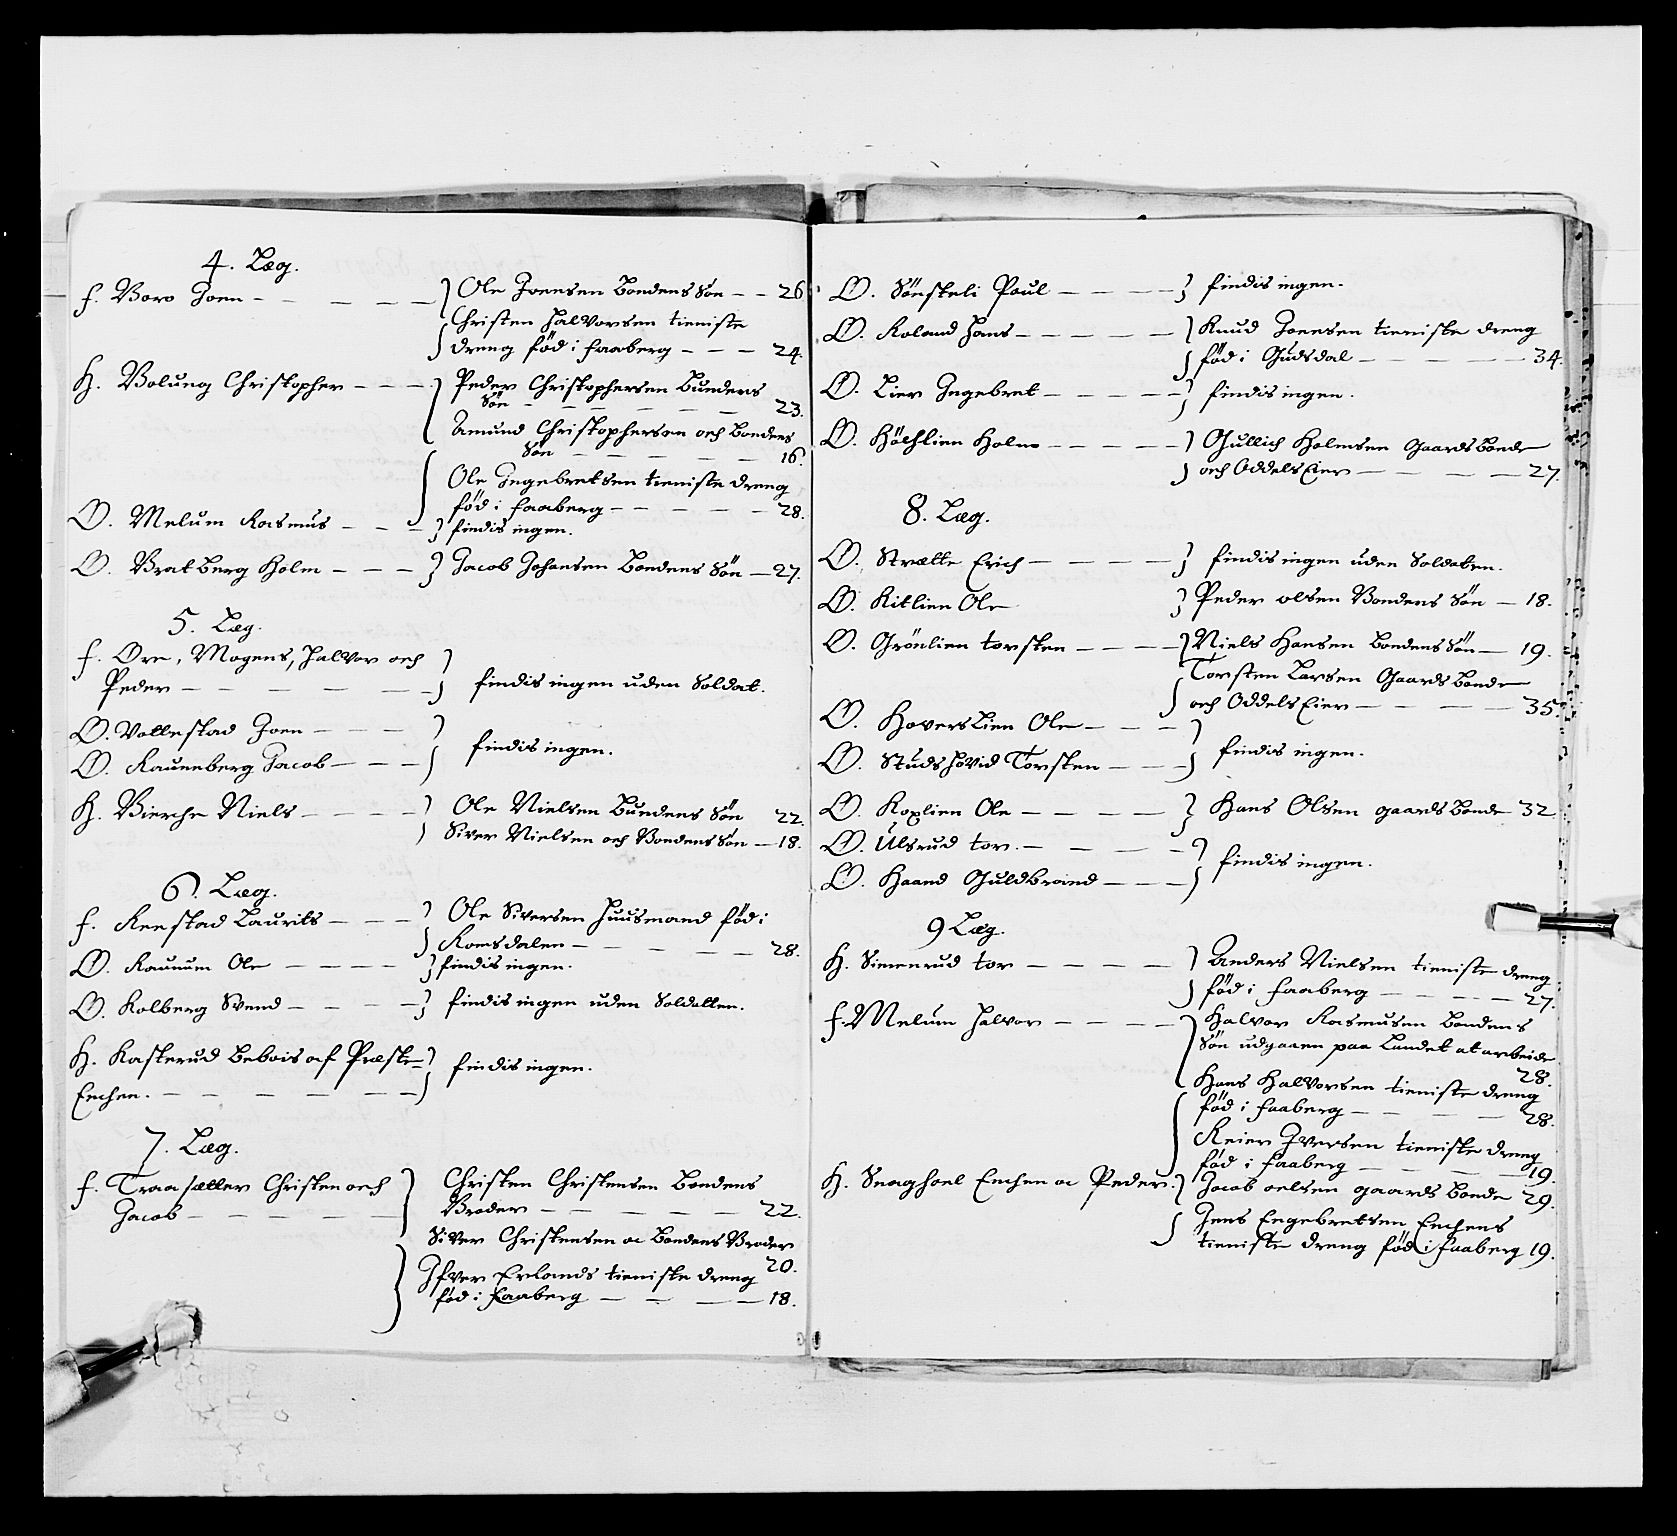 4. Læg.
f. Boro Joen
Ole Joensen Bondens Søn 26
Christen Halvorsen tieniste
dreng fød i Faaberg 24.
H. Bolung Christopher
Peder Christophersen Bundens
Søn 23.
Amund Christophersen och Bondens
Søn 16.
Ole Ingebretsen tieniste dreng
fød i Faaberg 28.
Ø. Melum Rasmus
findis ingen.
Ø. Bratberg Holm
Jacob Johansen Bondens Søn 27.
5. Læg.
f. Øre, Mogens, Halvor och
Peder
findis ingen uden Soldat.
Ø. Vollestad Joen
Ø. Rauneberg Jacob
findis ingen.
H. Bierche Niels
Ole Nielsen Bundens Søn 22.
Siver Nielsen och Bondens Søn 18.
6. Læg.
f. Reestad Laurits
Ole Siversen Huusmand fød i
Romsdalen 28.
Ø. Raunum Ole
findis ingen.
Ø. Kolberg Svend
findis ingen uden Soldatten.
H. Kasterud Bebois af Præste-
Enchen.
findis ingen.
7. Læg.
f. Traasætter Christen och
Jacob
Christen Christensen Bondens
Broder 22.
Siver Christensen oc Bondens Broder
20.
Ifver Erlands tieniste dreng
fød i Faaberg 18.
Ø. Sønsteli Poul
findis ingen.
Ø. Roland Hans
Knud Joensen tieniste dreng
fød i Gudsdal 34.
Ø. Lier Ingebret
findis ingen.
Ø. Høistlien Holm
Gullich Holmsen Gaards Bonde
och Oddels Eier 27.
8. Læg.
Ø. Strætte Erich
findis ingen uden Soldaten.
Ø. Kitlien Ole
Peder Olsen Bondens Søn 18.
Ø. Grønlien torsten
Niels Hansen Bondens Søn 19.
Torsten Larsen Gaards Bonde
och Oddels Eier 35.
Ø. Hoverslien Ole
Ø. Studshovid Torsten
findis ingen.
Ø. Koxlien Ole
Hans Olsen gaards Bonde 32
Ø. Ulsrud tor.
Ø. Haand Guldbrand
findis ingen.
9 Læg.
H. Simenrud tor
Anders Nielsen tieniste dreng
fød i Faaberg 27.
f. Melum Halvor
Halvor Rasmusen Bondens
Søn udgaaen paa Landet at arbeide
28.
Hans Halvorsen tieniste dreng
fød i Faaberg 28.
Reier Iversen tieniste dreng
fød i Faaberg 19.
H. Snaghoel Enchen oc Peder.
Jacob oelsen gaards Bonde 29.
Jens Engebretsen Enchens
tieniste dreng fød i Faaberg 19.